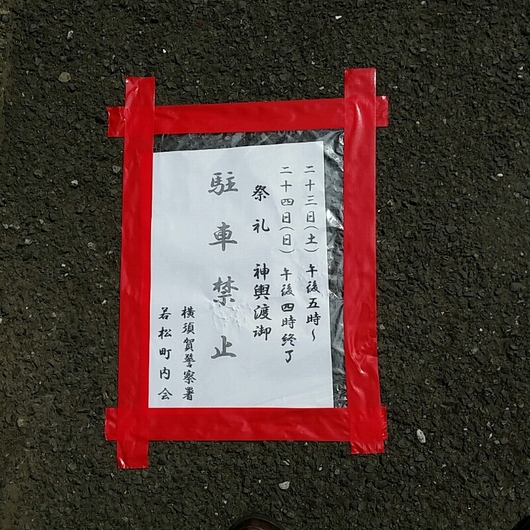 二十三日(土) 午後五時~
二十四日(日) 午後四時終了
祭礼 神輿渡御
駐車禁止
横須賀警察署
若松町内会